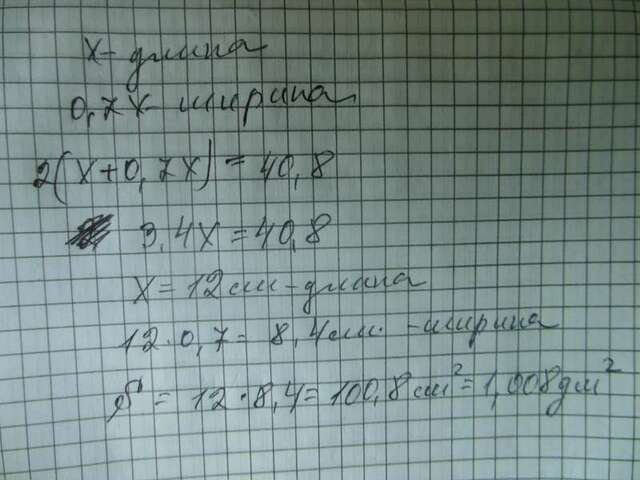 x - длина
0,7x - ширина
2(x+0,7x) = 40,8
3,4x = 40,8
x = 12 см - длина
12·0,7 = 8,4 см. - ширина
S = 12·8,4 = 100,8 см² = 1,008 дм²